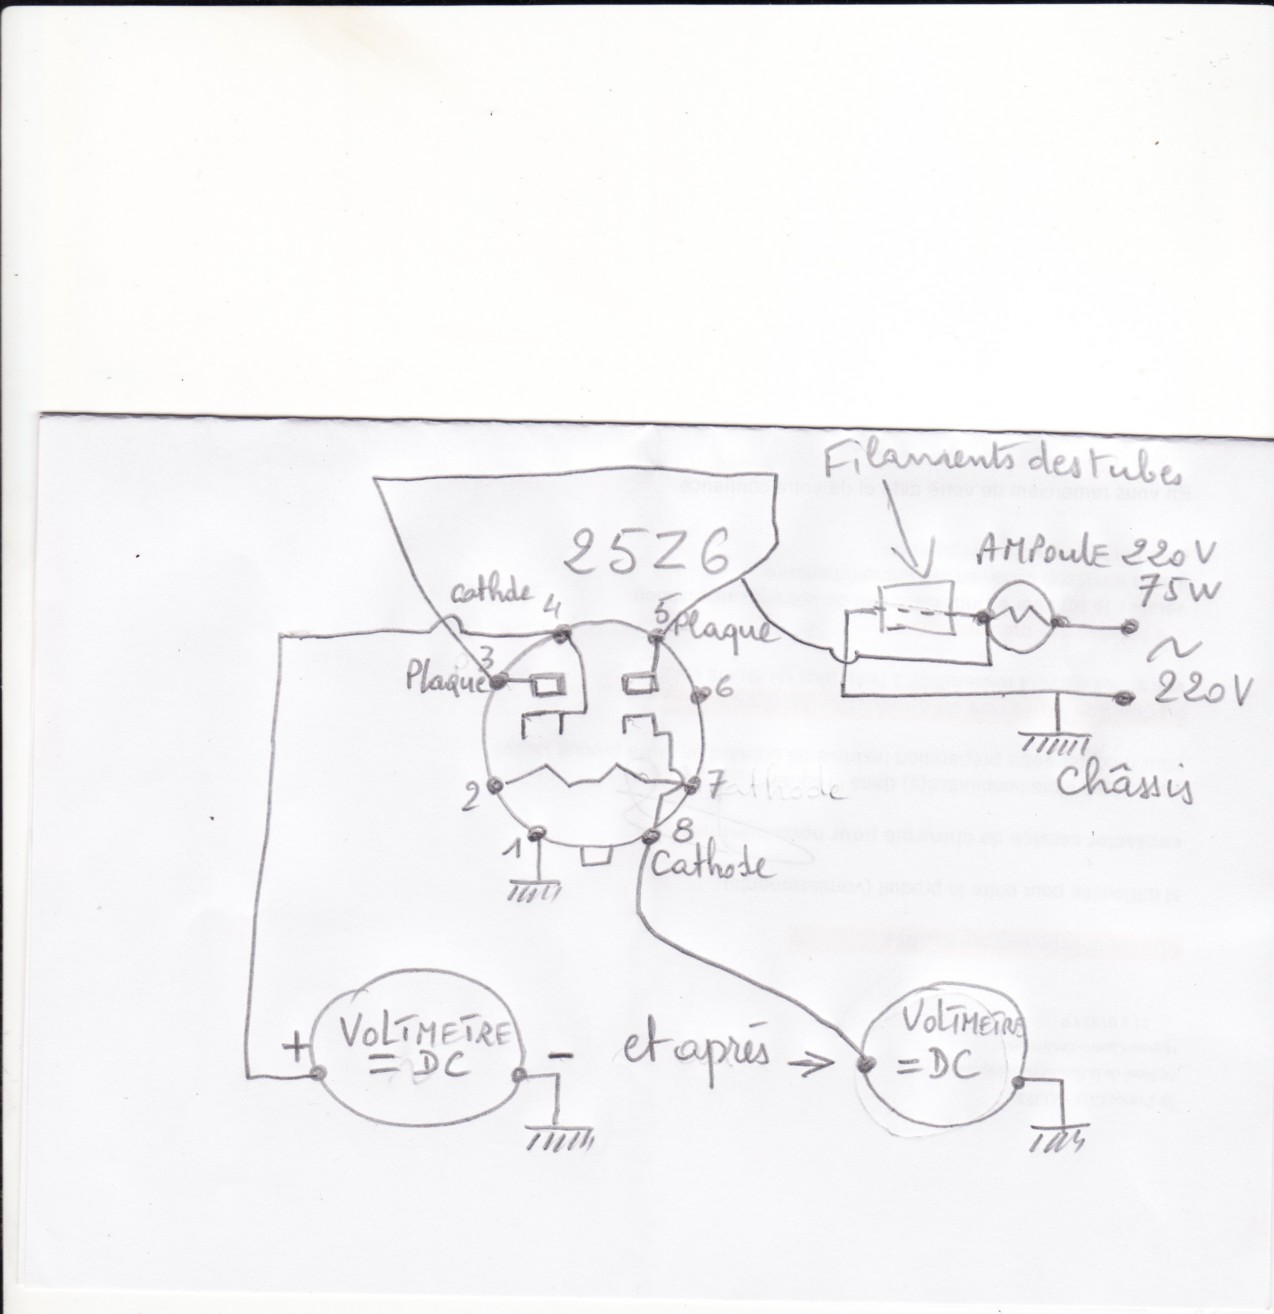 Filaments des tubes
25Z6
AMPOULE 220V
75W
cathde 4
5 Plaque
3
Plaque
6
~
220V
Châssis
2
7
1
8
Cathode
+ VOLTMETRE -
= DC
et après →
VOLTMETRE
= DC